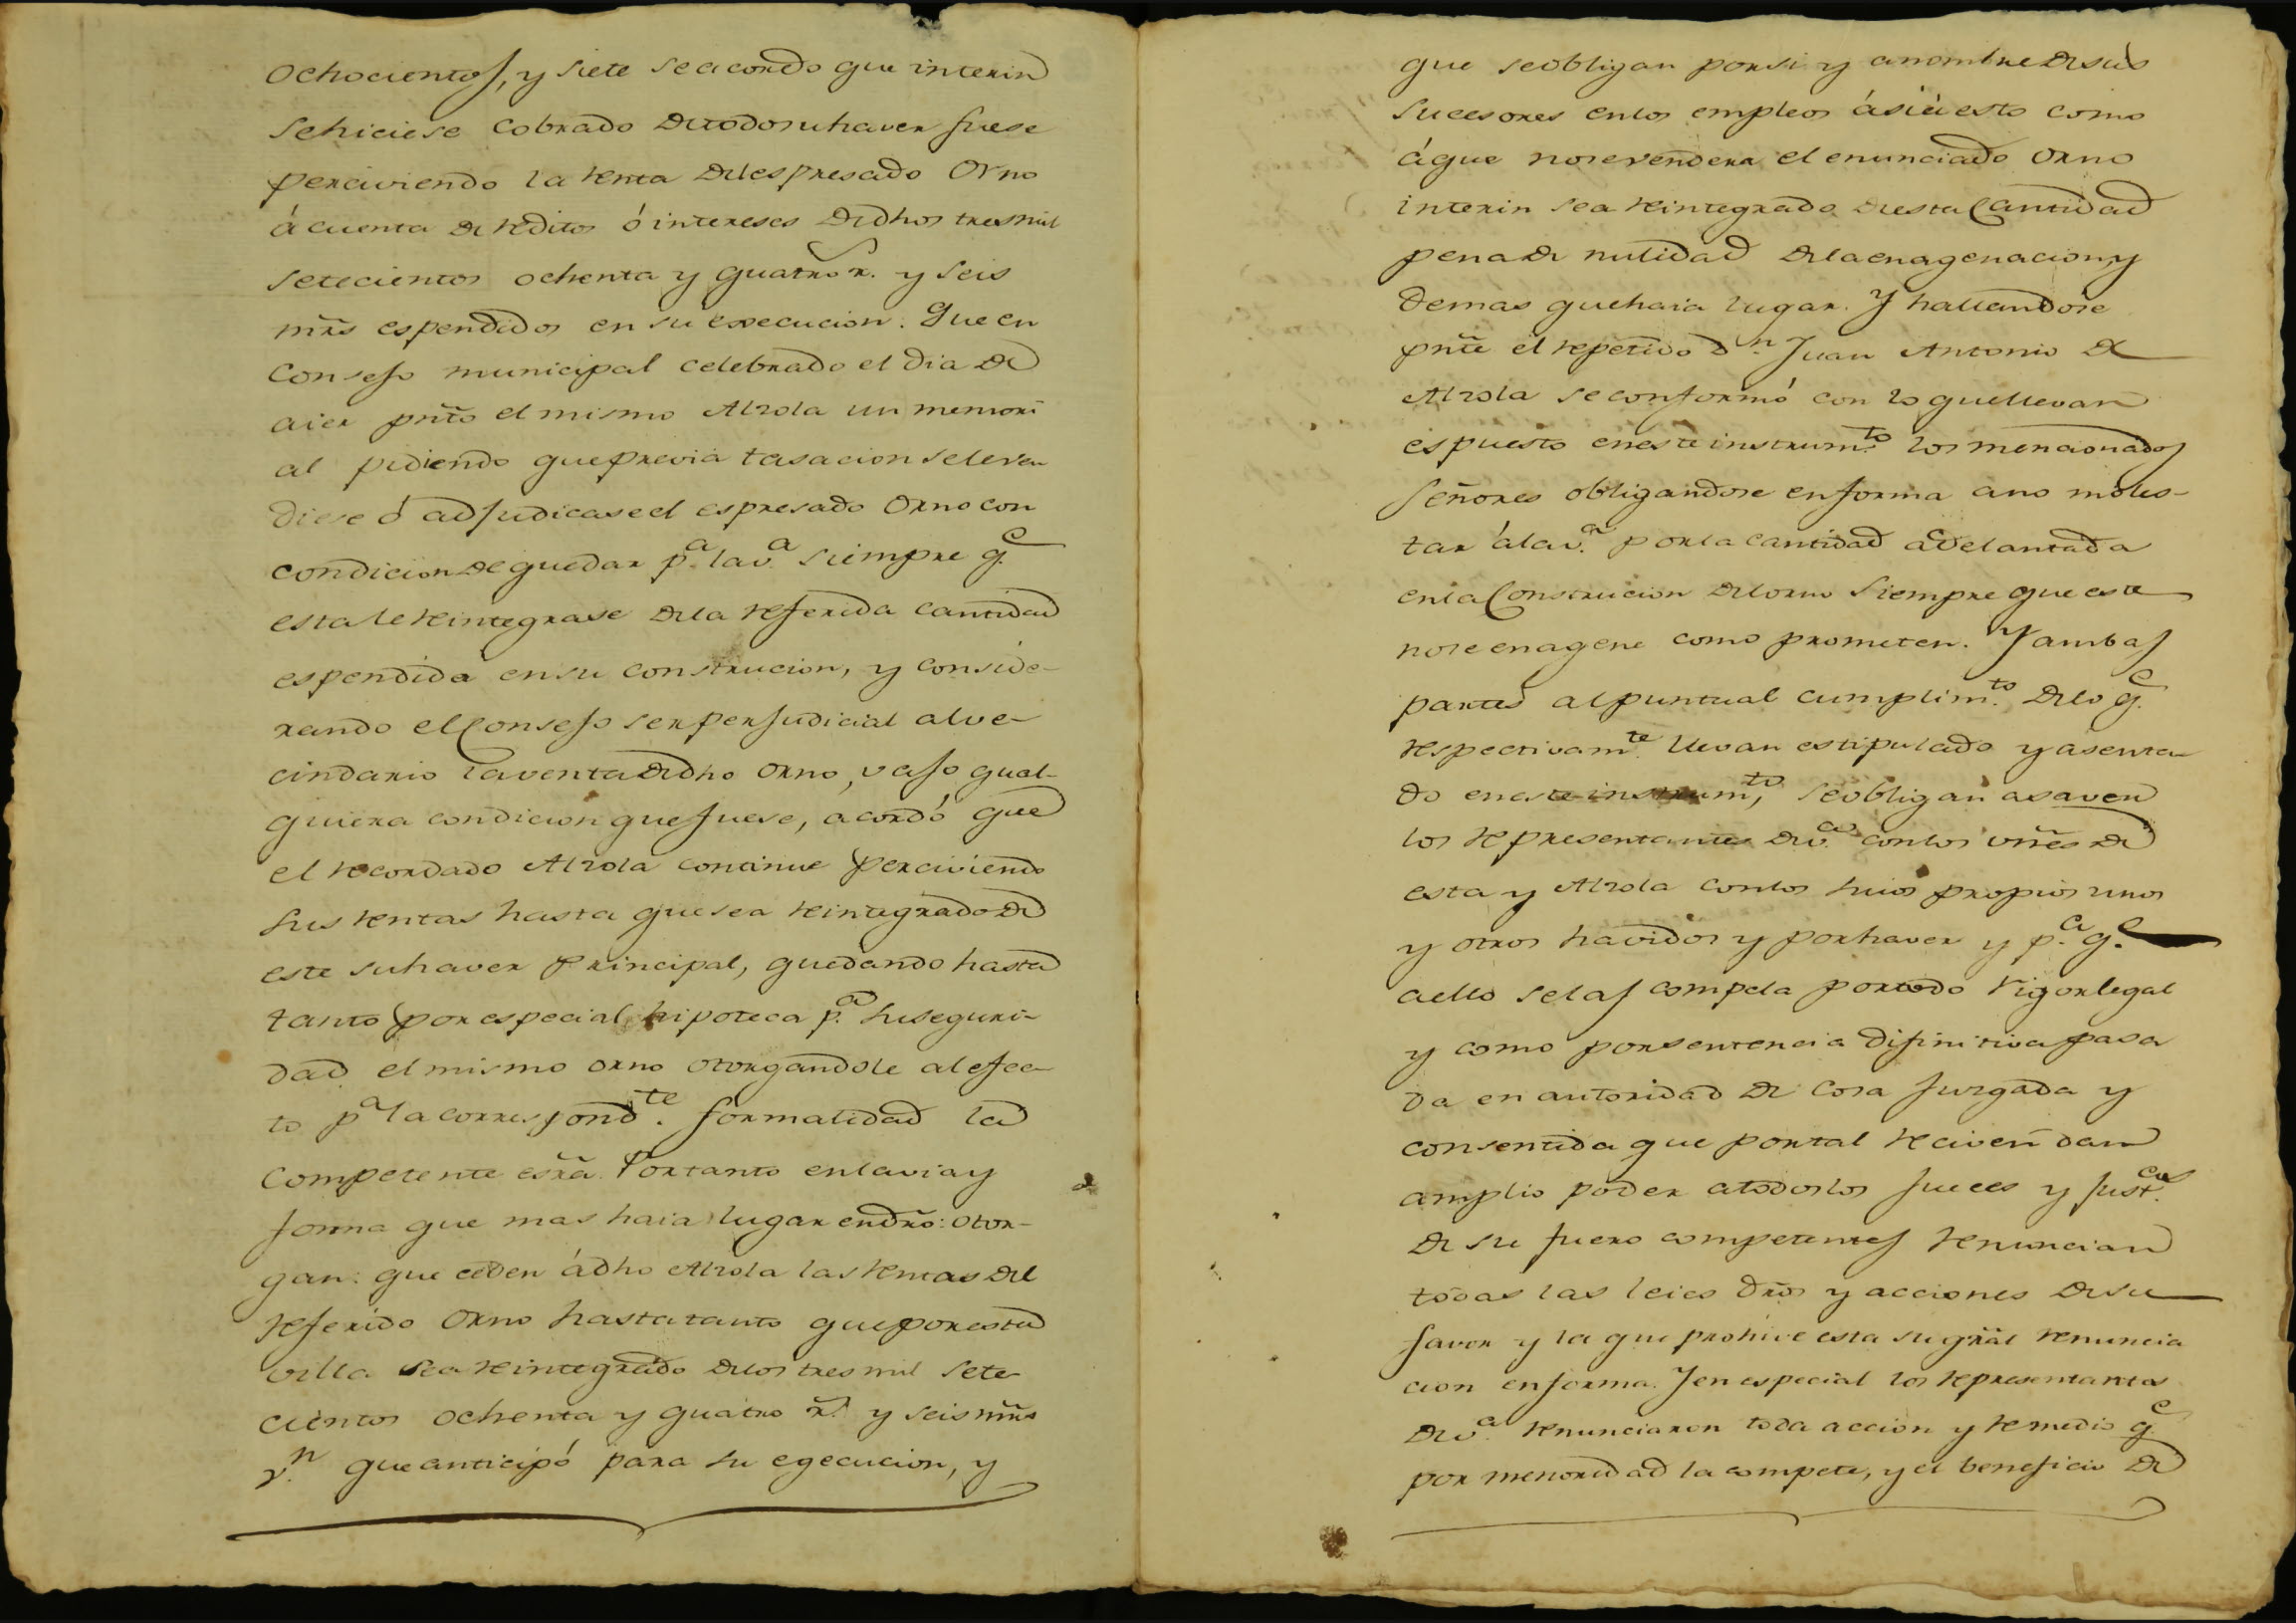 ochocientos, y siete se acordo que interin
se hiciese cobrado de todo su haver fuese
perciviendo la renta del espresado Orno
á cuenta de reditos ó intereses de dhos tres mil
setecientos ochenta y quatro r.s y seis
mrs espendidos en su execucion. Que en
Consejo municipal celebrado el dia de
aier pnto el mismo Alzola un memori
al pidiendo que previa tasacion se le ven
diese ó adjudicase el espresado Orno con
condicion de quedar p.a la v.a siempre q.e
esta le reintegrase de la referida cantidad
espendida en su construcion, y conside-
rando el Consejo ser perjudicial al ve-
cindario la venta de dho Orno, vajo qual-
quiera condicion que fuese, acordó que
el recordado Alzola continue perciviendo
sus rentas hasta que sea reintegrado de
este su haver principal, quedando hasta
tanto por especial hipoteca p.a su seguri-
dad el mismo orno otorgandole al efec-
to p.a la correspond.te formalidad la
competente esra. Por tanto en la via y
forma que mas haia lugar en dro: otor-
gan: que ceden á dho Alzola las rentas del
referido Orno hasta tanto que por esta
villa sea reintegrado de los tres mil sete-
cientos ochenta y quatro r.s y seis mrs
v.n que anticipó para su egecucion, y
que se obligan por si y a nombre de sus
sucesores en los empleos ási á esto como
á que no se vendera el enunciado Orno
interin sea reintegrado de esta Cantidad
pena de nulidad de la enagenacion y
demas que haia lugar. Y hallandose
pnte el repetido d.n Juan Antonio de
Alzola se conformó con lo que llevan
espuesto en este instrum.to los mencionados
Señores obligandose en forma a no moles-
tar á la v.a por la cantidad adelantada
en la Construcion del orno siempre que este
no se enagene como prometen. Y ambas
partes al puntual cumplim.to de lo q.e
respectivam.te llevan estipulado y asenta-
do en este instrum.to, se obligan a saver
los representantes de v.a con los vnes de
esta y Alzola con los suios propios unos
y otros havidos y por haver y p.a q.e
a ello se las compela por todo rigor legal
y como por sentencia difinitiva pasa
da en autoridad de cosa juzgada y
consentida que por tal reciven dan
amplio poder a todos los jueces y just.cas
de su fuero competentes renuncian
todas las leies dros y acciones de su
favor y la que prohive esta su gral renuncia
cion en forma. Y en especial los representantes
de v.a renunciaron toda accion y remedio q.e
por menoridad la compete, y el beneficio de